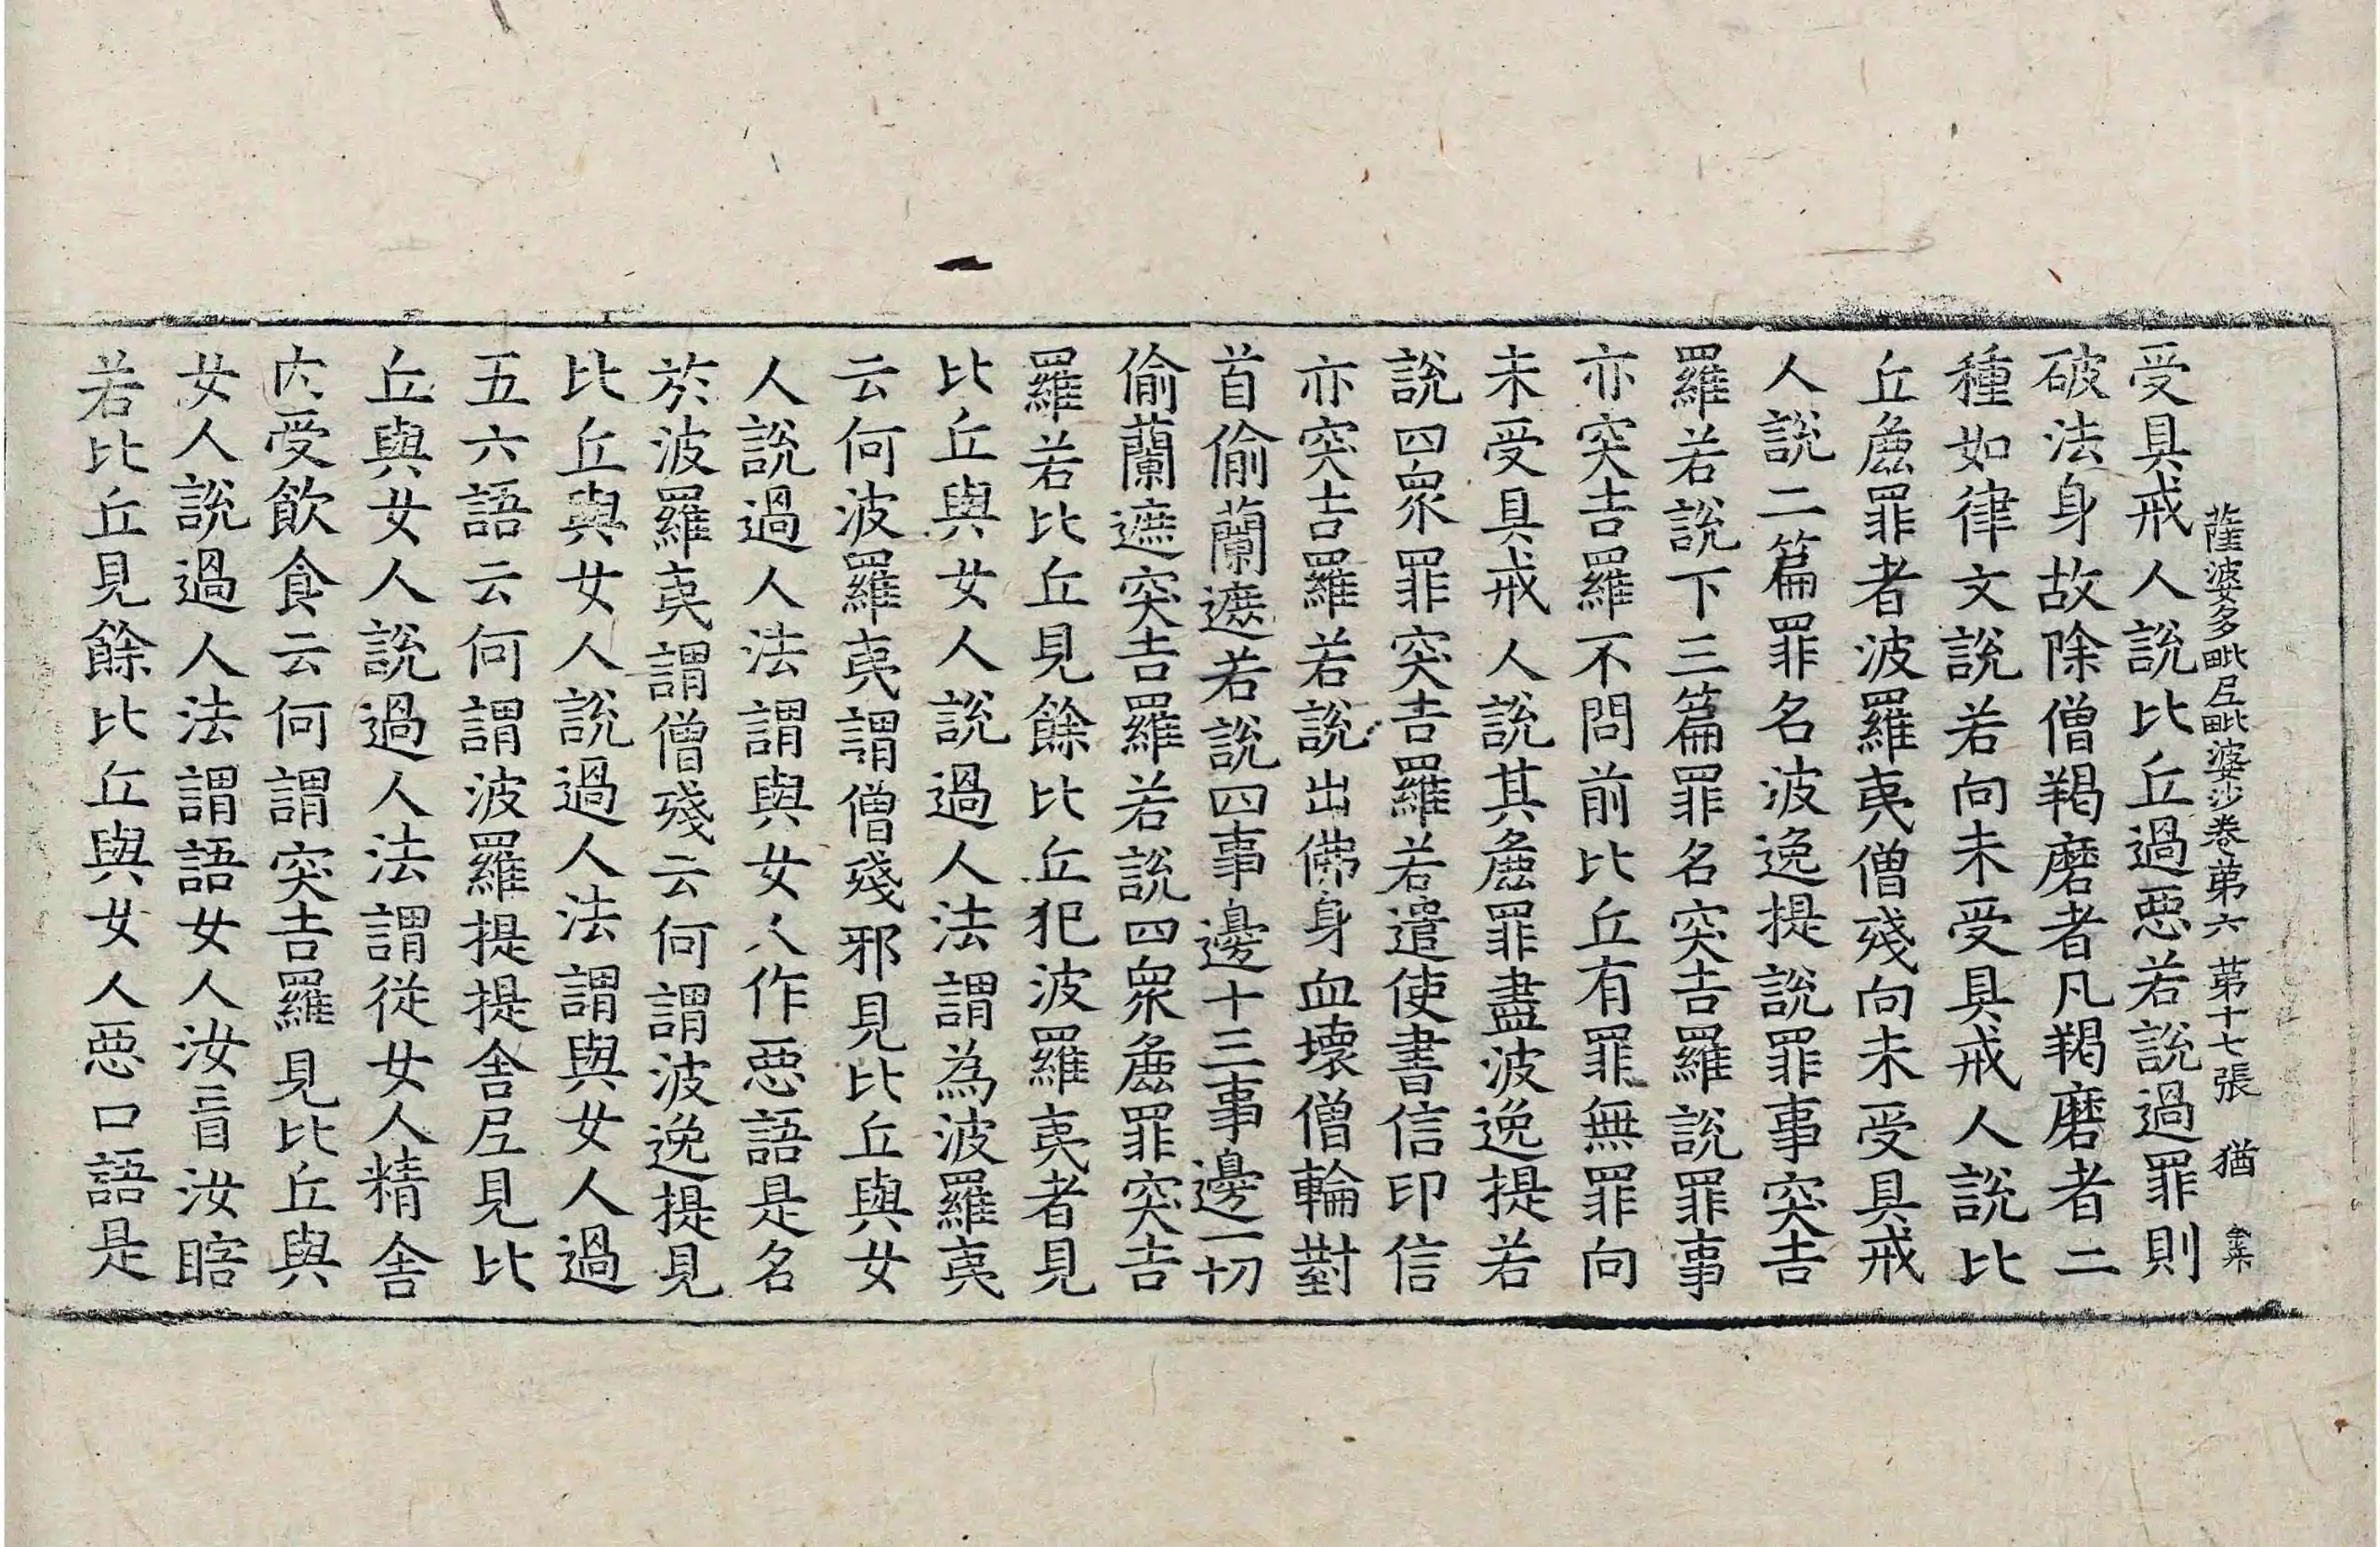 薩婆多毗尼毗婆沙卷第六 第十七張 猶
受具戒人說比丘過惡若說過罪則
破法身故除僧羯磨者凡羯磨者二
種如律文說若向未受具戒人說比
丘麁罪者波羅夷僧殘向未受具戒
人說二篇罪名波逸提說罪事突吉
羅若說下三篇罪名突吉羅說罪事
亦突吉羅不問前比丘有罪無罪向
未受具戒人說其麁罪盡波逸提若
說四衆罪突吉羅若遣使書信印信
亦突吉羅若說出佛身血壞僧輪對
首偷蘭遮若說四事邊十三事邊一切
偷蘭遮突吉羅若說四衆麁罪突吉
羅若比丘見餘比丘犯波羅夷者見
比丘與女人說過人法謂為波羅夷
云何波羅夷謂僧殘邪見比丘與女
人說過人法謂與女人作惡語是名
於波羅夷謂僧殘云何謂波逸提見
比丘與女人說過人法謂與女人過
五六語云何謂波羅提提舍尼見比
丘與女人說過人法謂從女人精舍
內受飲食云何謂突吉羅見比丘與
女人說過人法謂語女人汝盲汝瞎
若比丘見餘比丘與女人惡口語是